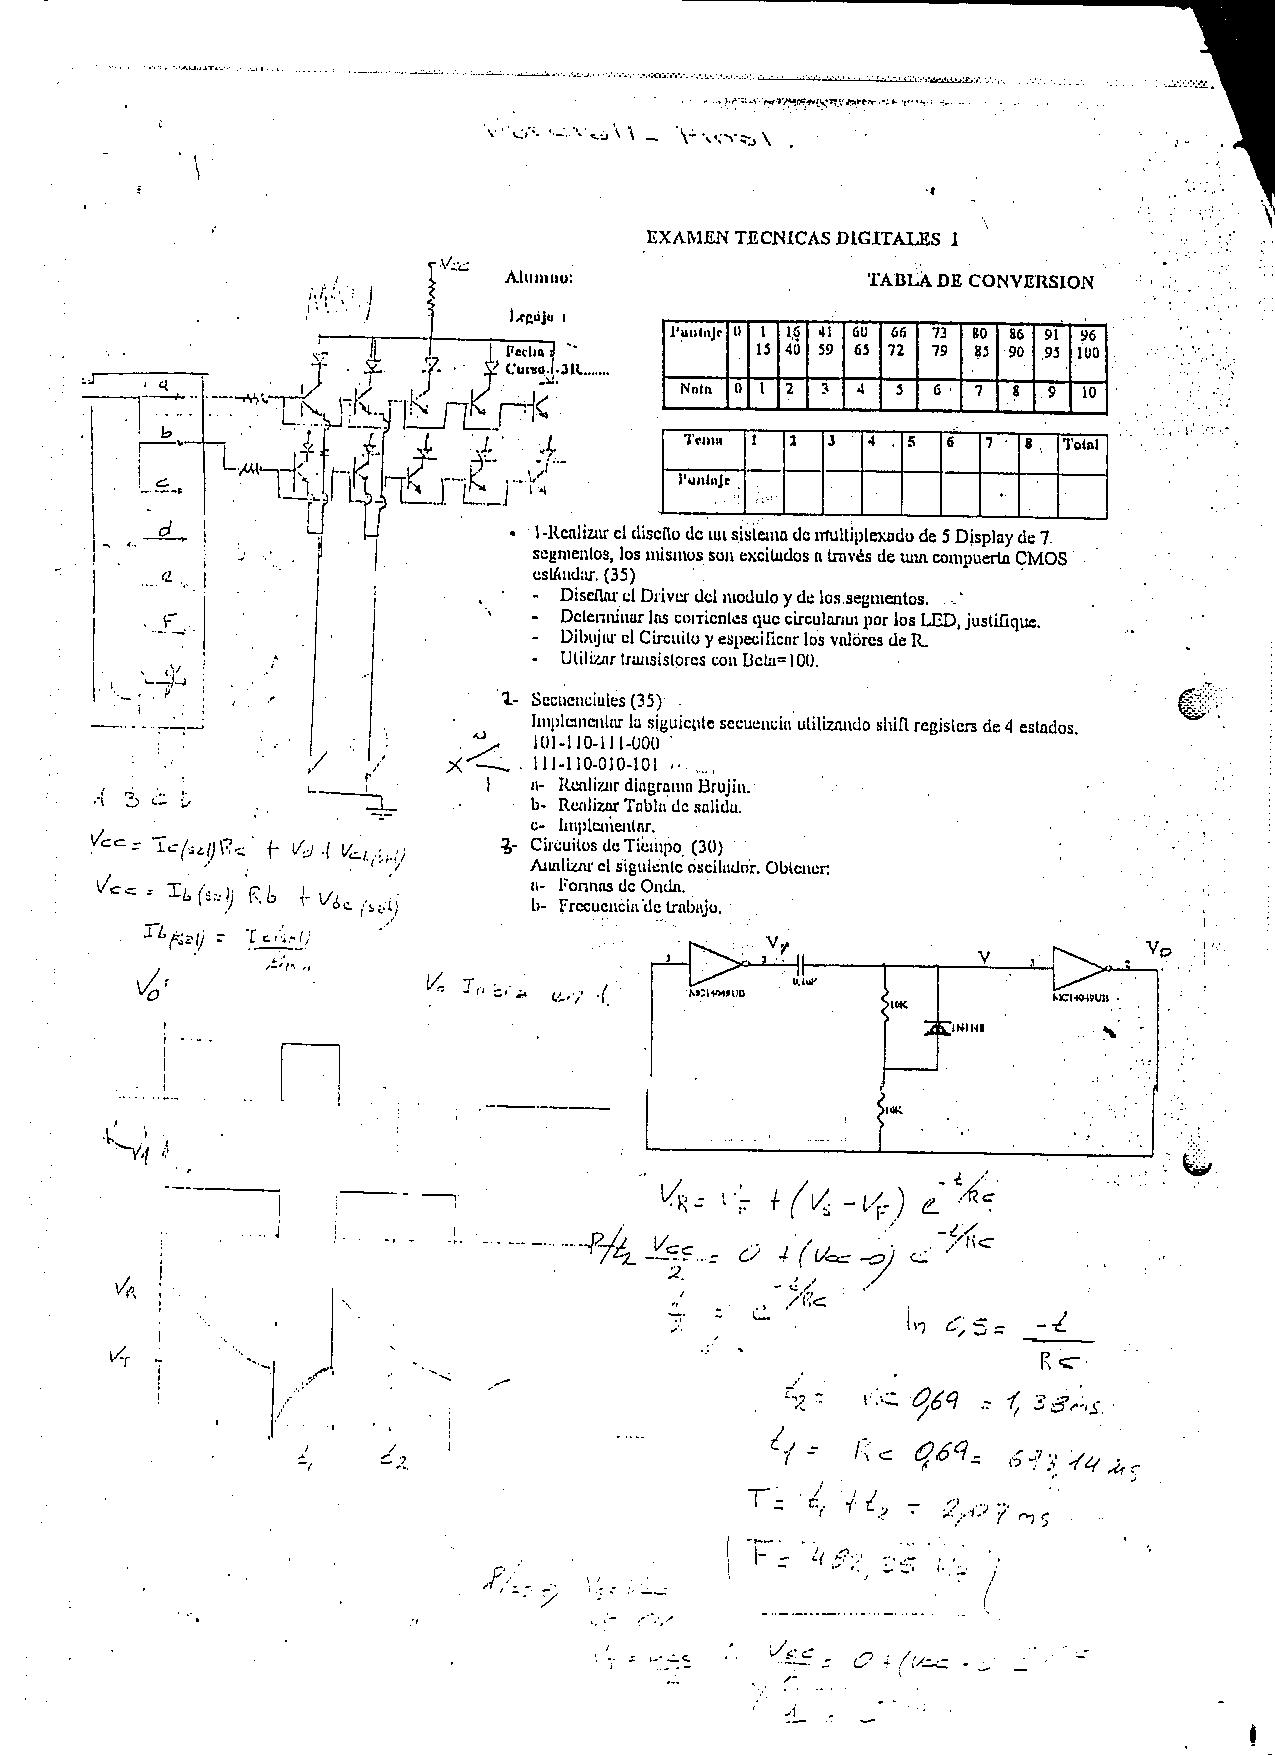 EXAMEN TECNICAS DIGITALES 1
Vcc
Alumno:
TABLA DE CONVERSION
Legajo :
Fecha :
Curso : 3R.......
Puntaje 0 1 16 41 60 66 73 80 86 91 96
15 40 59 65 72 79 85 90 95 100
Nota 0 1 2 3 4 5 6 7 8 9 10
Tema 1 2 3 4 5 6 7 8 Total
Puntaje
a
b
c
d
e
F
g
1-Realizar el diseño de un sistema de multiplexado de 5 Display de 7
segmentos, los mismos son excitados a través de una compuerta CMOS
estándar. (35)
- Diseñar el Driver del modulo y de los segmentos.
- Determinar las corrientes que circularan por los LED, justifique.
- Dibujar el Circuito y especificar los valores de R.
- Utilizar transistores con Beta=100.
2- Secuenciales (35)
Implementar la siguiente secuencia utilizando shift registers de 4 estados.
101-110-111-000
X
111-110-010-101
1
a- Realizar diagrama Brujin.
b- Realizar Tabla de salida.
c- Implementar.
3- Circuitos de Tiempo. (30)
Analizar el siguiente oscilador. Obtener:
a- Formas de Onda.
b- Frecuencia de trabajo.
A B C D
Vcc = Ic(sat)Rc + Vd + Vce(sat)
Vcc = Ib(sat) Rb + Vbe(sat)
Ib(sat) = Ic(sat)
Vo
Vo Inicia en 1
V1
V
Vo
MC14049UB
0.1uF
10K
MC14049UB
10K
V1
VR
VT
t1 t2
VR = VF + (VS - VF) e -t/RC
P/t2 Vcc/2 = 0 + (Vcc - 0) e -t/RC
1/2 = e -t/RC
ln 0,5 = -t
RC
t2 = RC 0,69 = 1,38ms
t1 = RC 0,69 = 693,14 us
T = t1 + t2 = 2,07 ms
F = 482,
Vcc = 0 + (Vcc - 0